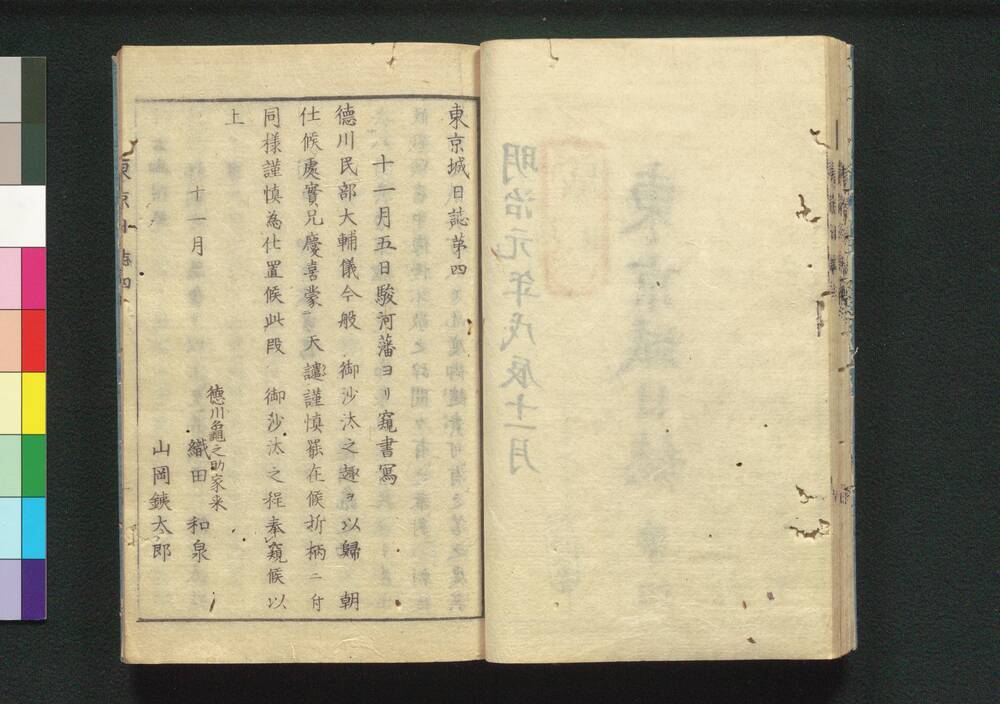 明治元年戊辰十一月
東京城日誌第四
十一月五日駿河藩ヨリ窺書寫
德川民部大輔儀今般 御沙汰之趣ヲ以歸 朝
仕候處實兄慶喜蒙 天譴謹慎罷在候折柄ニ付
同様謹慎為仕置候此段 御沙汰之程奉窺候以
上
十一月
德川龜之助家来
織田 和泉
山岡鉄太郎